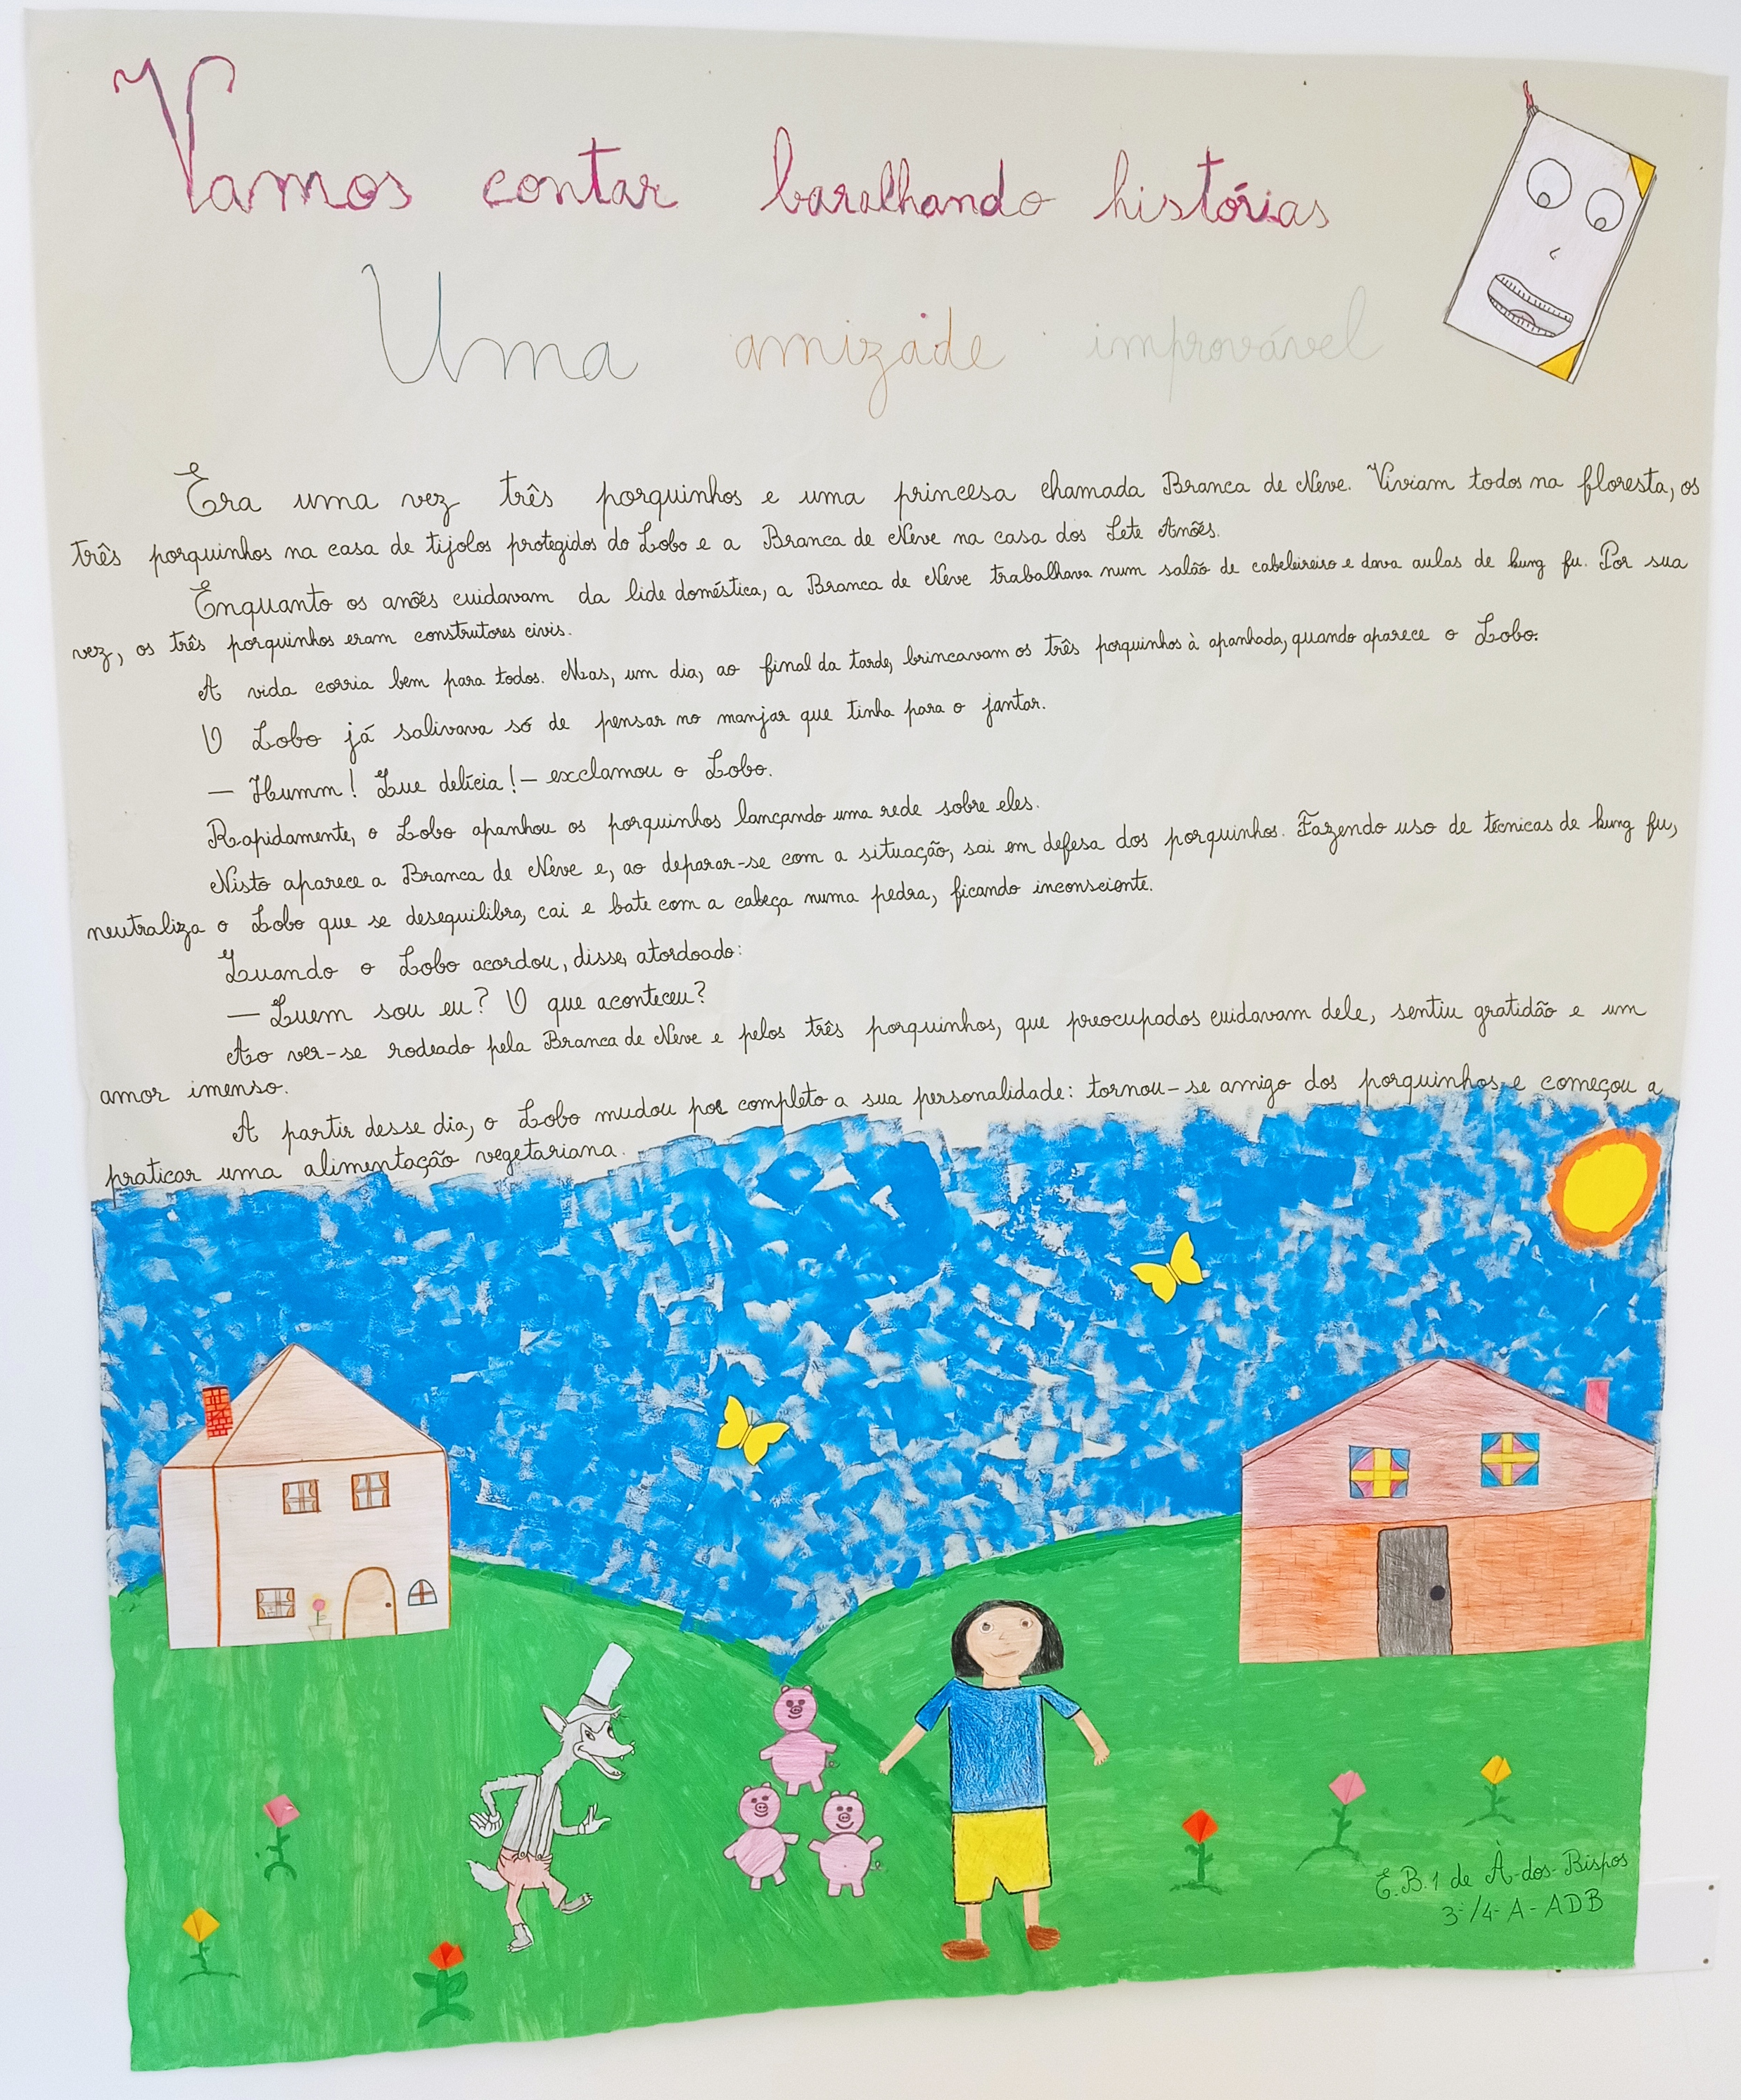 Vamos contar baralhando histórias
Uma amizade improvável
Era uma vez três porquinhos e uma princesa chamada Branca de Neve. Viviam todos na floresta, os
três porquinhos na casa de tijolos protegidos do Lobo e a Branca de Neve na casa dos Sete Anões.
Enquanto os anões cuidavam da lide doméstica, a Branca de Neve trabalhava num salão de cabeleireiro e dava aulas de kung fu. Por sua
vez, os três porquinhos eram construtores civis.
A vida corria bem para todos. Mas, um dia, ao final da tarde, brincavam os três porquinhos à apanhada, quando aparece o Lobo.
O Lobo já salivava só de pensar no manjar que tinha para o jantar.
— Humm! Que delícia! — exclamou o Lobo.
Rapidamente, o Lobo apanhou os porquinhos lançando uma rede sobre eles.
Nisto aparece a Branca de Neve e, ao deparar-se com a situação, sai em defesa dos porquinhos. Fazendo uso de técnicas de kung fu,
neutraliza o Lobo que se desequilibra, cai e bate com a cabeça numa pedra, ficando inconsciente.
Quando o Lobo acordou, disse, atordoado:
— Quem sou eu? O que aconteceu?
Ao ver-se rodeado pela Branca de Neve e pelos três porquinhos, que preocupados cuidavam dele, sentiu gratidão e um
amor imenso.
A partir desse dia, o Lobo mudou por completo a sua personalidade: tornou-se amigo dos porquinhos e começou a
praticar uma alimentação vegetariana.
E.B.1 de À-dos-Bispos
3º/4º A - ADB